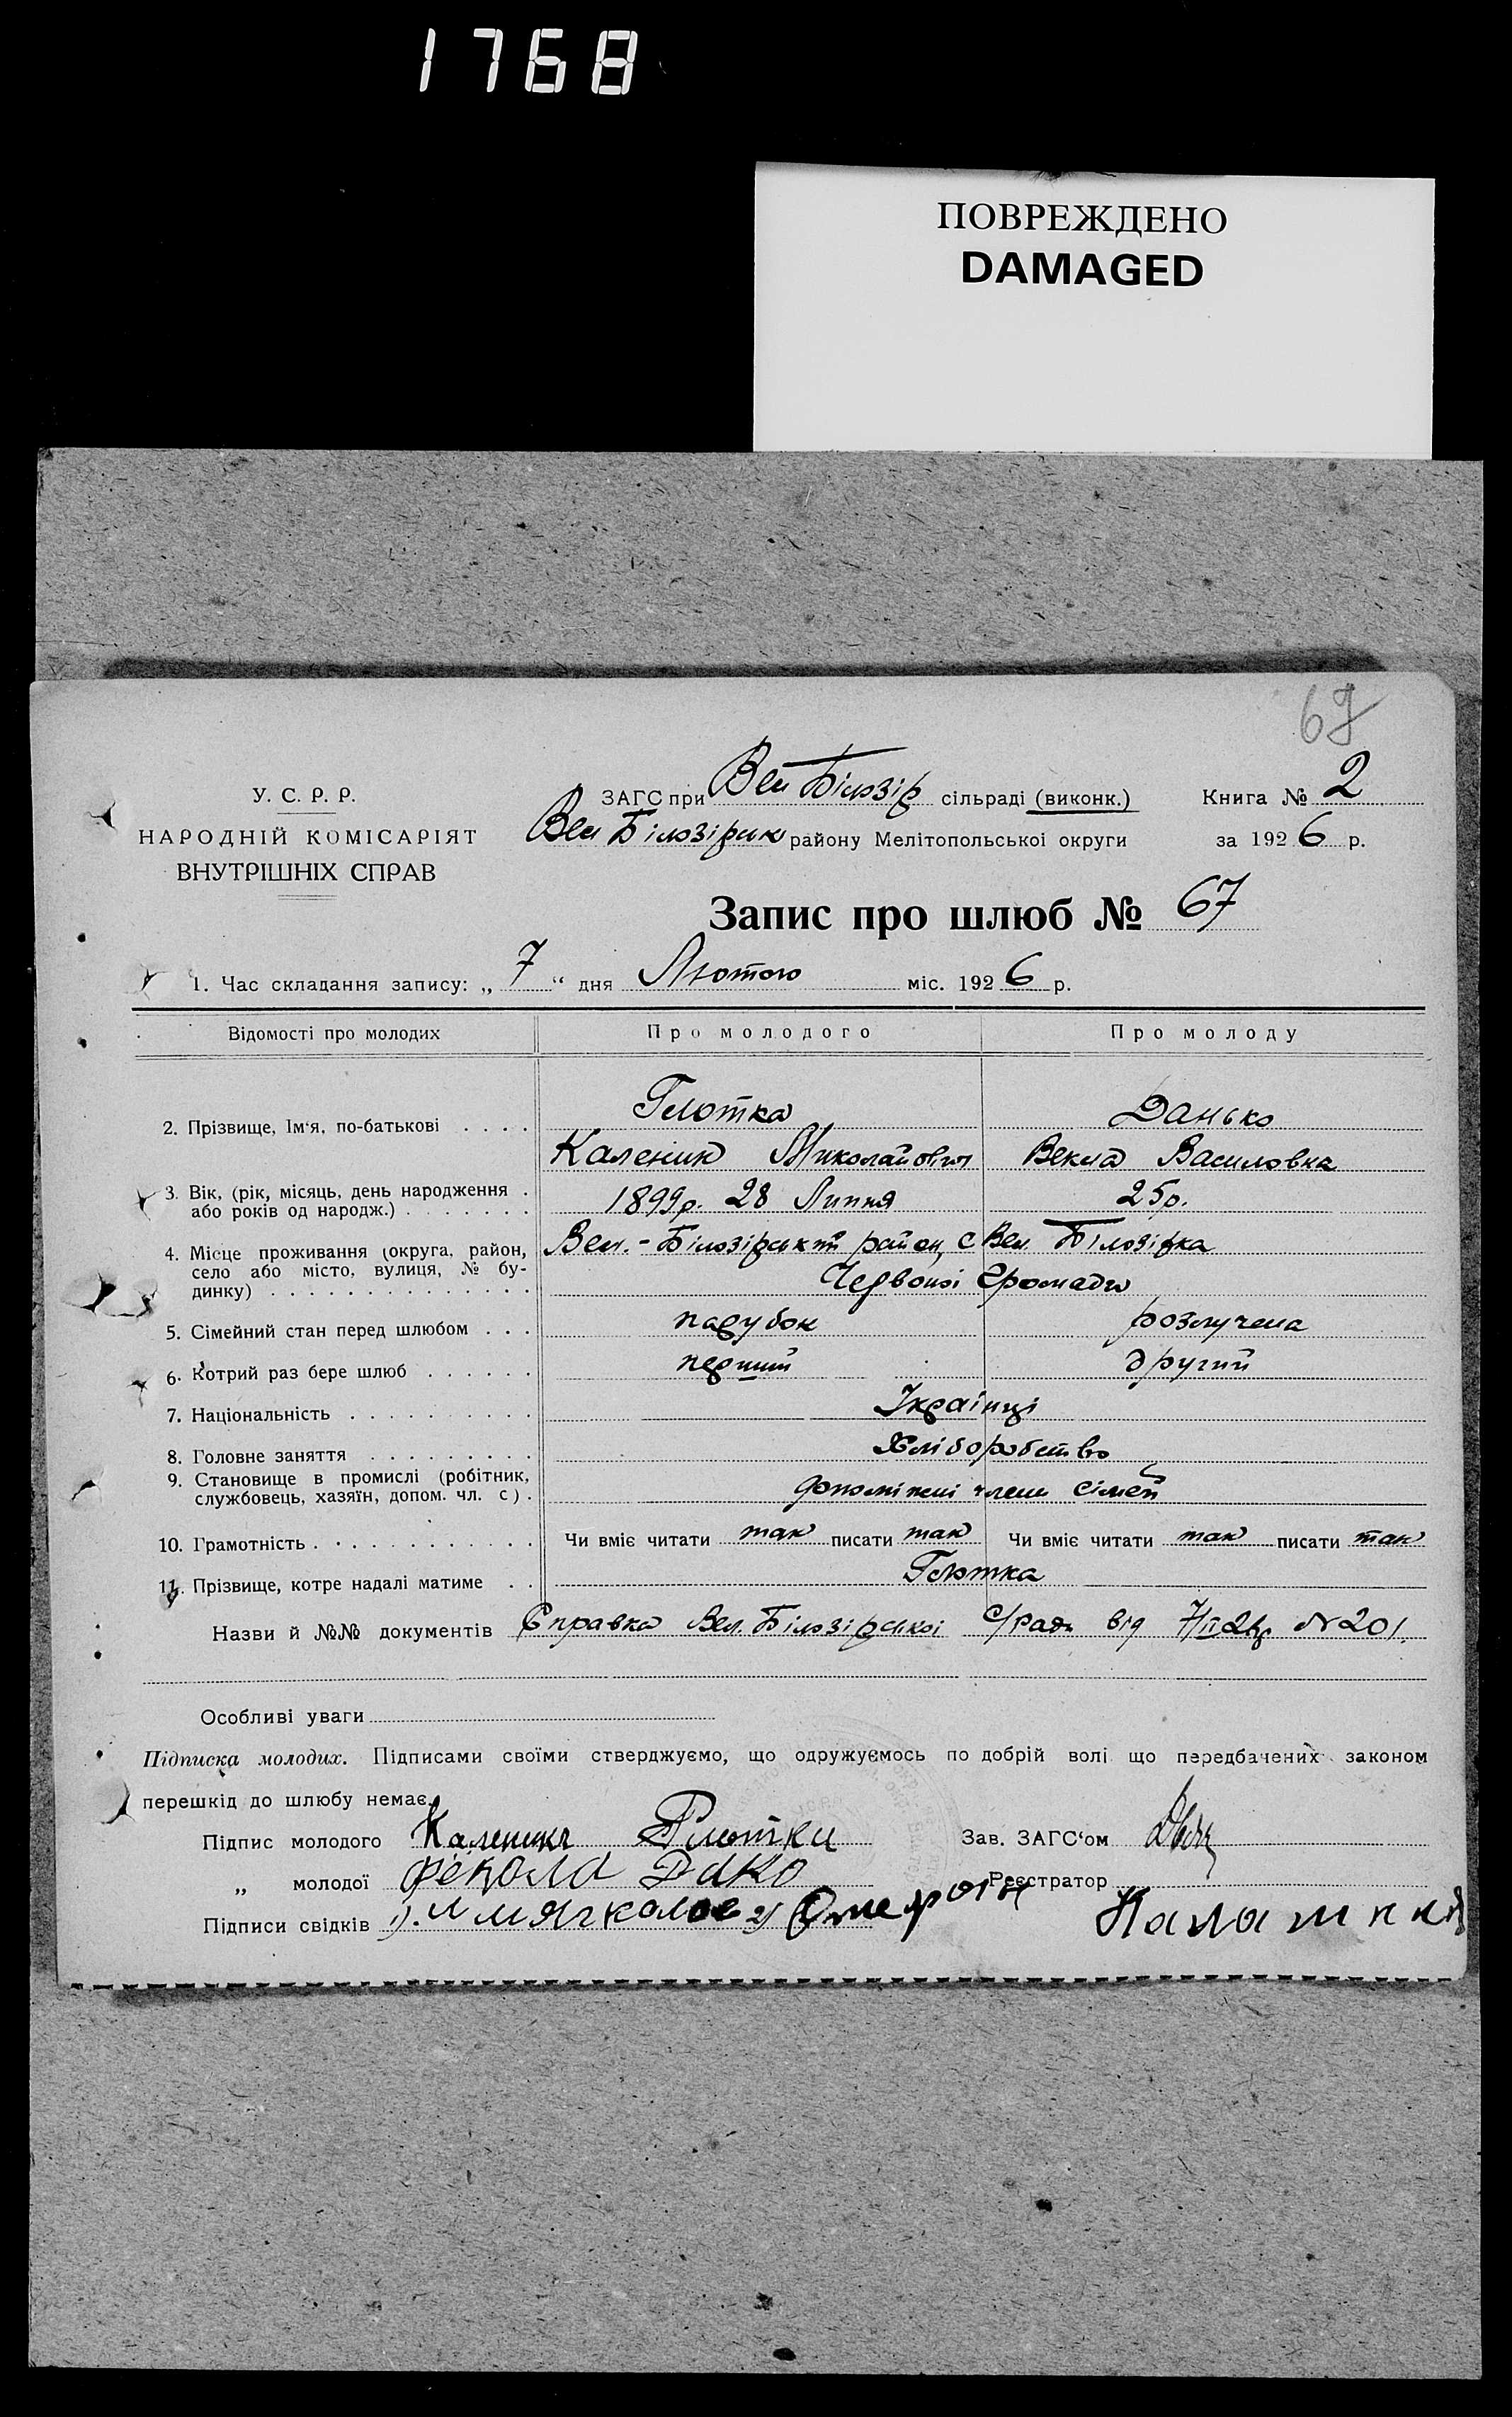 1768
ПОВРЕЖДЕНО
DAMAGED
69
У. С. Р. Р.
НАРОДНІЙ КОМІСАРІЯТ
ВНУТРІШНІХ СПРАВ
ЗАГС при Вел Білозір сільраді (виконк.)
Вел Білозірик району Мелітопольської округи
Книга № 2
за 1926 р.
Запис про шлюб № 67
1. Час складання запису: „ 7 “ дня Лютого міс. 1926 р.
Відомості про молодих Про молодого Про молоду
2. Прізвище, Ім‘я, по-батькові . . . . Глютка Данько
Каленик Миколайович Векла Василовна
3. Вік, (рік, місяць, день народження .
або років од народж.) . . . . . . . 1899р. 28 Липня 25р.
4. Місце проживання (округа, район,
село або місто, вулиця, № бу-
динку) . . . . . . . . . . . . . .
Вел.-Білозірський район, с Вел Білозірка
Червоної Громади
5. Сімейний стан перед шлюбом . . . парубок розлучена
6. Котрий раз бере шлюб . . . . . . перший другий
7. Національність . . . . . . . . . . Українці
8. Головне заняття . . . . . . . . . Хліборобство
9. Становище в промислі (робітник,
службовець, хазяїн, допом. чл. с) . допоміжні члени сімей
10. Грамотність . . . . . . . . . . . . Чи вміє читати так писати так Чи вміє читати так писати так
11. Прізвище, котре надалі матиме . . Глютка
Назви й №№ документів Справка Вел. Білозірської С/ради від 7/II 26р N 201.
Особливі уваги
Підписка молодих. Підписами своїми стверджуємо, що одружуємось по добрій волі що передбачених законом
перешкід до шлюбу немає.
Підпис молодого Каленика Глютки Зав. ЗАГС‘ом
„ молодої Фекола Дако Реєстратор
Підписи свідків 1). 2)